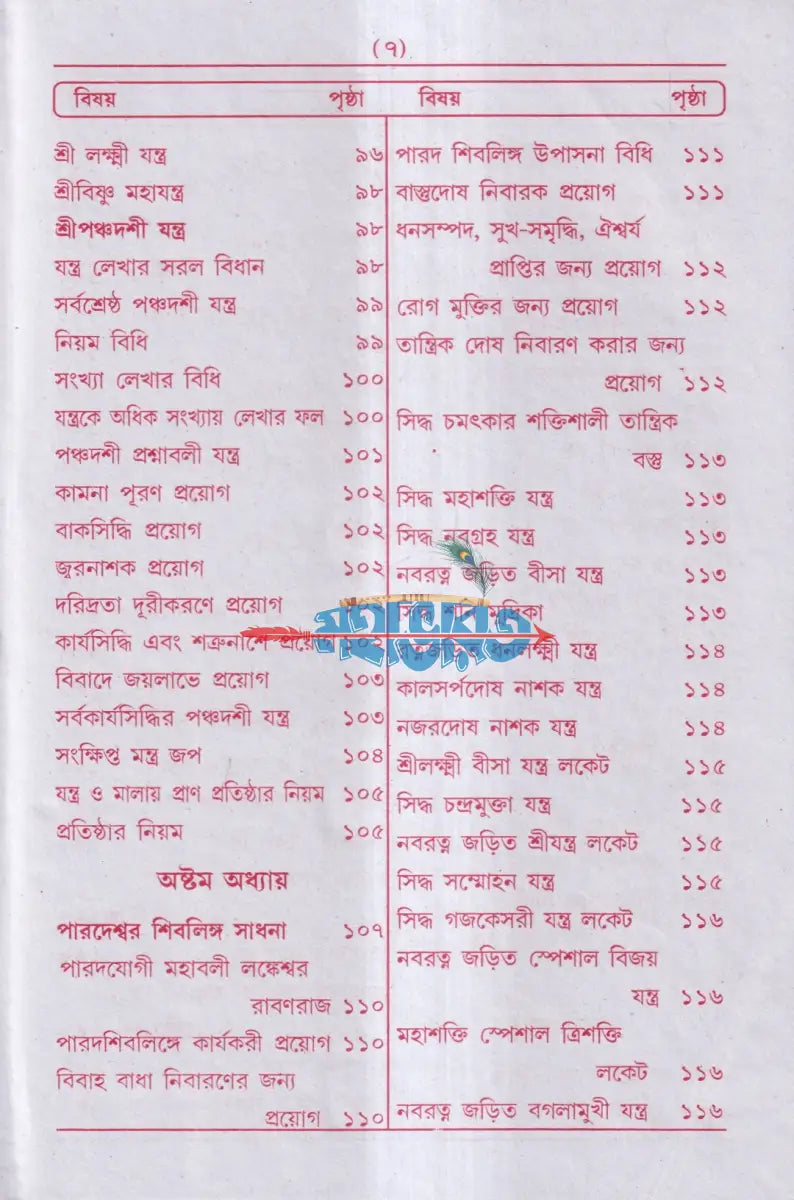 (৭)
বিষয় পৃষ্ঠা বিষয় পৃষ্ঠা
শ্রী লক্ষ্মী যন্ত্র ৯৬
শ্রীবিষ্ণু মহাযন্ত্র ৯৮
শ্রীপঞ্চদশী যন্ত্র ৯৮
যন্ত্র লেখার সরল বিধান ৯৮
সর্বশ্রেষ্ঠ পঞ্চদশী যন্ত্র ৯৯
নিয়ম বিধি ৯৯
সংখ্যা লেখার বিধি ১০০
যন্ত্রকে অধিক সংখ্যায় লেখার ফল ১০০
পঞ্চদশী প্রশ্নাবলী যন্ত্র ১০১
কামনা পূরণ প্রয়োগ ১০২
বাকসিদ্ধি প্রয়োগ ১০২
জ্বরনাশক প্রয়োগ ১০২
দরিদ্রতা দূরীকরণে প্রয়োগ
কার্যসিদ্ধি এবং শত্রুনাশে প্রয়োগ ১০২
বিবাদে জয়লাভে প্রয়োগ ১০৩
সর্বকার্যসিদ্ধির পঞ্চদশী যন্ত্র ১০৩
সংক্ষিপ্ত মন্ত্র জপ ১০৪
যন্ত্র ও মালায় প্রাণ প্রতিষ্ঠার নিয়ম ১০৫
প্রতিষ্ঠার নিয়ম ১০৫
অষ্টম অধ্যায়
পারদেশ্বর শিবলিঙ্গ সাধনা ১০৭
পারদযোগী মহাবলী লঙ্কেশ্বর
রাবণরাজ ১১০
পারদশিবলিঙ্গে কার্যকরী প্রয়োগ ১১০
বিবাহ বাধা নিবারণের জন্য
প্রয়োগ ১১০
পারদ শিবলিঙ্গ উপাসনা বিধি ১১১
বাস্তুদোষ নিবারক প্রয়োগ ১১১
ধনসম্পদ, সুখ-সমৃদ্ধি, ঐশ্বর্য
প্রাপ্তির জন্য প্রয়োগ ১১২
রোগ মুক্তির জন্য প্রয়োগ ১১২
তান্ত্রিক দোষ নিবারণ করার জন্য
প্রয়োগ ১১২
সিদ্ধ চমৎকার শক্তিশালী তান্ত্রিক
বস্তু ১১৩
সিদ্ধ মহাশক্তি যন্ত্র ১১৩
সিদ্ধ নবগ্রহ যন্ত্র ১১৩
নবরত্ন জড়িত বীসা যন্ত্র ১১৩
সিদ্ধ শনি মুদ্রিকা ১১৩
রত্নজড়িত ধনলক্ষ্মী যন্ত্র ১১৪
কালসর্পদোষ নাশক যন্ত্র ১১৪
নজরদোষ নাশক যন্ত্র ১১৪
শ্রীলক্ষ্মী বীসা যন্ত্র লকেট ১১৫
সিদ্ধ চন্দ্রমুক্তা যন্ত্র ১১৫
নবরত্ন জড়িত শ্রীযন্ত্র লকেট ১১৫
সিদ্ধ সম্মোহন যন্ত্র ১১৫
সিদ্ধ গজকেসরী যন্ত্র লকেট ১১৬
নবরত্ন জড়িত স্পেশাল বিজয়
যন্ত্র ১১৬
মহাশক্তি স্পেশাল ত্রিশক্তি
লকেট ১১৬
নবরত্ন জড়িত বগলামুখী যন্ত্র ১১৬